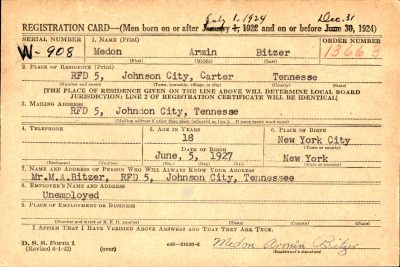 July 1, 1924 Dec. 31
REGISTRATION CARD—(Men born on or after January 1, 1922 and on or before June 30, 1924)
SERIAL NUMBER 1. NAME (Print) ORDER NUMBER
W-908 Medon Armin Bitzer 13663
(First) (Middle) (Last)
2. PLACE OF RESIDENCE (Print)
RFD 5, Johnson City, Carter Tennesse
(Number and street) (Town, township, village, or city) (County) (State)
[THE PLACE OF RESIDENCE GIVEN ON THE LINE ABOVE WILL DETERMINE LOCAL BOARD
JURISDICTION; LINE 2 OF REGISTRATION CERTIFICATE WILL BE IDENTICAL]
3. MAILING ADDRESS
RFD 5, Johnson City, Tennesse
[Mailing address if other than place indicated on line 2. If same insert word same]
4. TELEPHONE 5. AGE IN YEARS 6. PLACE OF BIRTH
18 New York City
DATE OF BIRTH (Town or county)
June, 5, 1927 New York
(Exchange) (Number) (Mo.) (Day) (Yr.) (State or country)
7. NAME AND ADDRESS OF PERSON WHO WILL ALWAYS KNOW YOUR ADDRESS
Mr.M.A.Bitzer, RFD 5, Johnson City, Tennessee
8. EMPLOYER'S NAME AND ADDRESS
Unemployed
9. PLACE OF EMPLOYMENT OR BUSINESS
(Number and street or R. F. D. number) (Town) (County) (State)
I AFFIRM THAT I HAVE VERIFIED ABOVE ANSWERS AND THAT THEY ARE TRUE.
D. S. S. Form 1 Medon Armin Bitzer
(Revised 6-1-42) (over) (Registrant's signature)